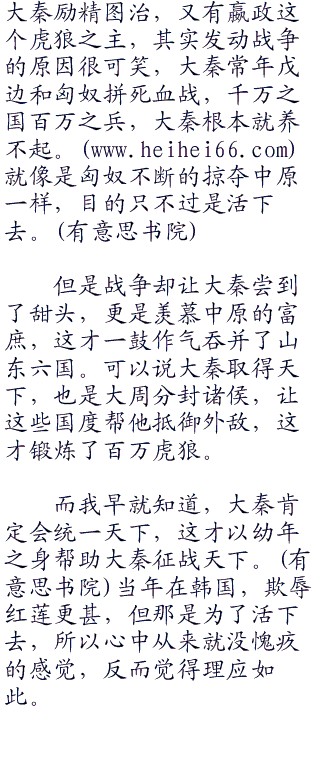 大秦励精图治，又有嬴政这
个虎狼之主，其实发动战争
的原因很可笑，大秦常年戍
边和匈奴拼死血战，千万之
国百万之兵，大秦根本就养
不起。(www.heihei66.com)
就像是匈奴不断的掠夺中原
一样，目的只不过是活下
去。(有意思书院)
但是战争却让大秦尝到
了甜头，更是羡慕中原的富
庶，这才一鼓作气吞并了山
东六国。可以说大秦取得天
下，也是大周分封诸侯，让
这些国度帮他抵御外敌，这
才锻炼了百万虎狼。
而我早就知道，大秦肯
定会统一天下，这才以幼年
之身帮助大秦征战天下。(有
意思书院)当年在韩国，欺辱
红莲更甚，但那是为了活下
去，所以心中从来就没愧疚
的感觉，反而觉得理应如
此。